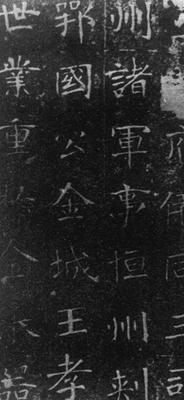 府儀同三司
州諸軍事恒州刺
國公金城王孝
世業重於金